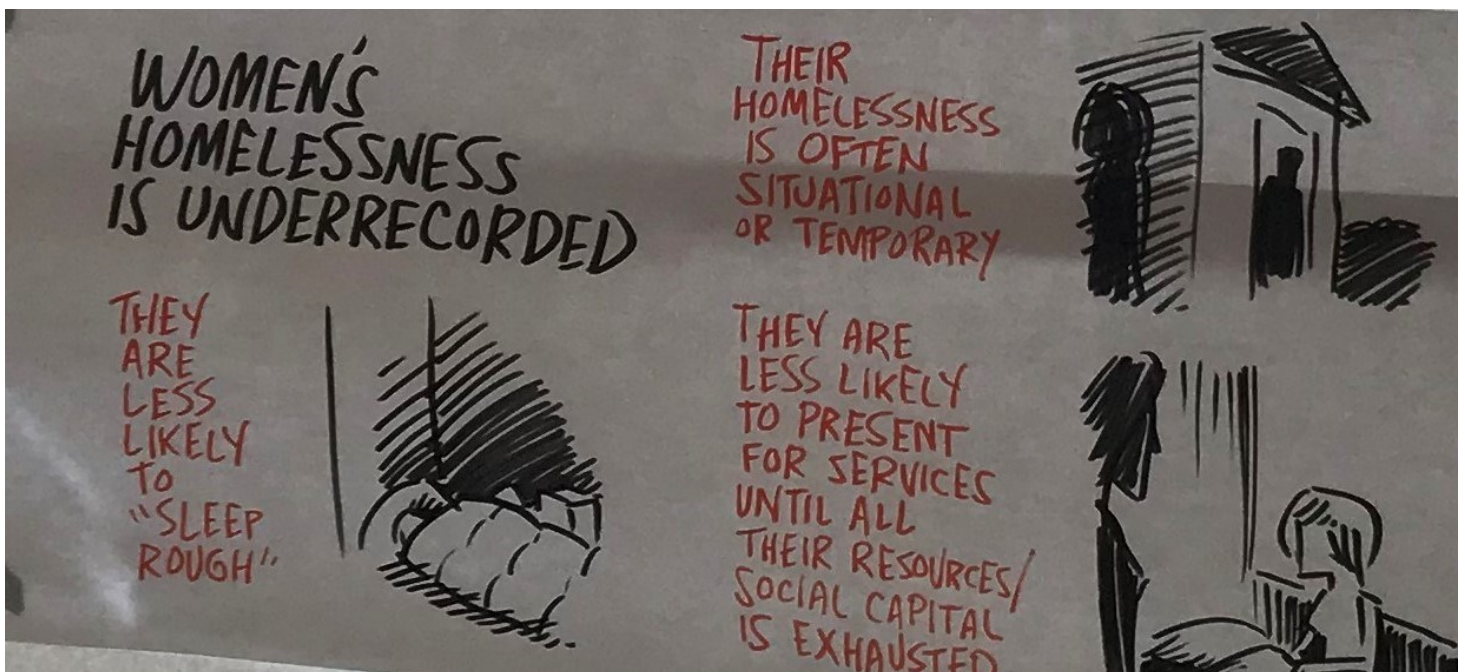 WOMEN'S
HOMELESSNESS
IS UNDERRECORDED
THEY
ARE
LESS
LIKELY
TO
"SLEEP
ROUGH"
THEIR
HOMELESSNESS
IS OFTEN
SITUATIONAL
OR TEMPORARY
THEY ARE
LESS LIKELY
TO PRESENT
FOR SERVICES
UNTIL ALL
THEIR RESOURCES/
SOCIAL CAPITAL
IS EXHAUSTED